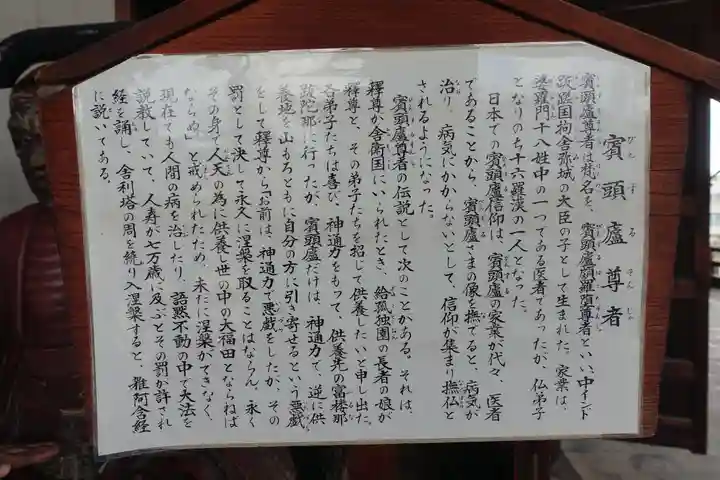 賓頭盧尊者
賓頭盧尊者は梵名を、賓頭盧頗羅隋尊者といい、中インド
跋蹉国拘舎弥城の大臣の子として生まれた。家業は、
婆羅門十八姓中の一つである医者であったが、仏弟子
となりのち十六羅漢の一人となった。
日本での賓頭盧信仰は、賓頭盧の家業が代々、医者
であることから、賓頭盧さまの像を撫でると、病気が
治り、病気にかからないとして、信仰が集まり撫仏と
されるようになった。
賓頭盧尊者の伝説として次のことがある。それは、
釋尊が舎衛国にいられたとき、給孤独園の長者の娘が
釋尊と、その弟子たちを招じて供養したいと申し出た。
各弟子たちは喜び、神通力をもって、供養先の富楼那
跋陀那に行ったが、賓頭盧だけは、神通力で、逆に供
養地を山もろともに自分の方に引き寄せるという悪戯
をして釋尊から「お前は、神通力で悪戯をしたが、その
罰として決して永久に涅槃を取ることはならん。永く
その身で人天の為に供養し世の中の大福田とならねば
ならぬ」と戒められたため、未だに涅槃ができなく、
現在でも人間の病を治したり、語黙不動の中で大法を
説教していて、人寿が七万歳に及ぶとその罰が許され
経を誦し、舎利塔の周を繞り入涅槃すると、雜阿含経
に説いてある。